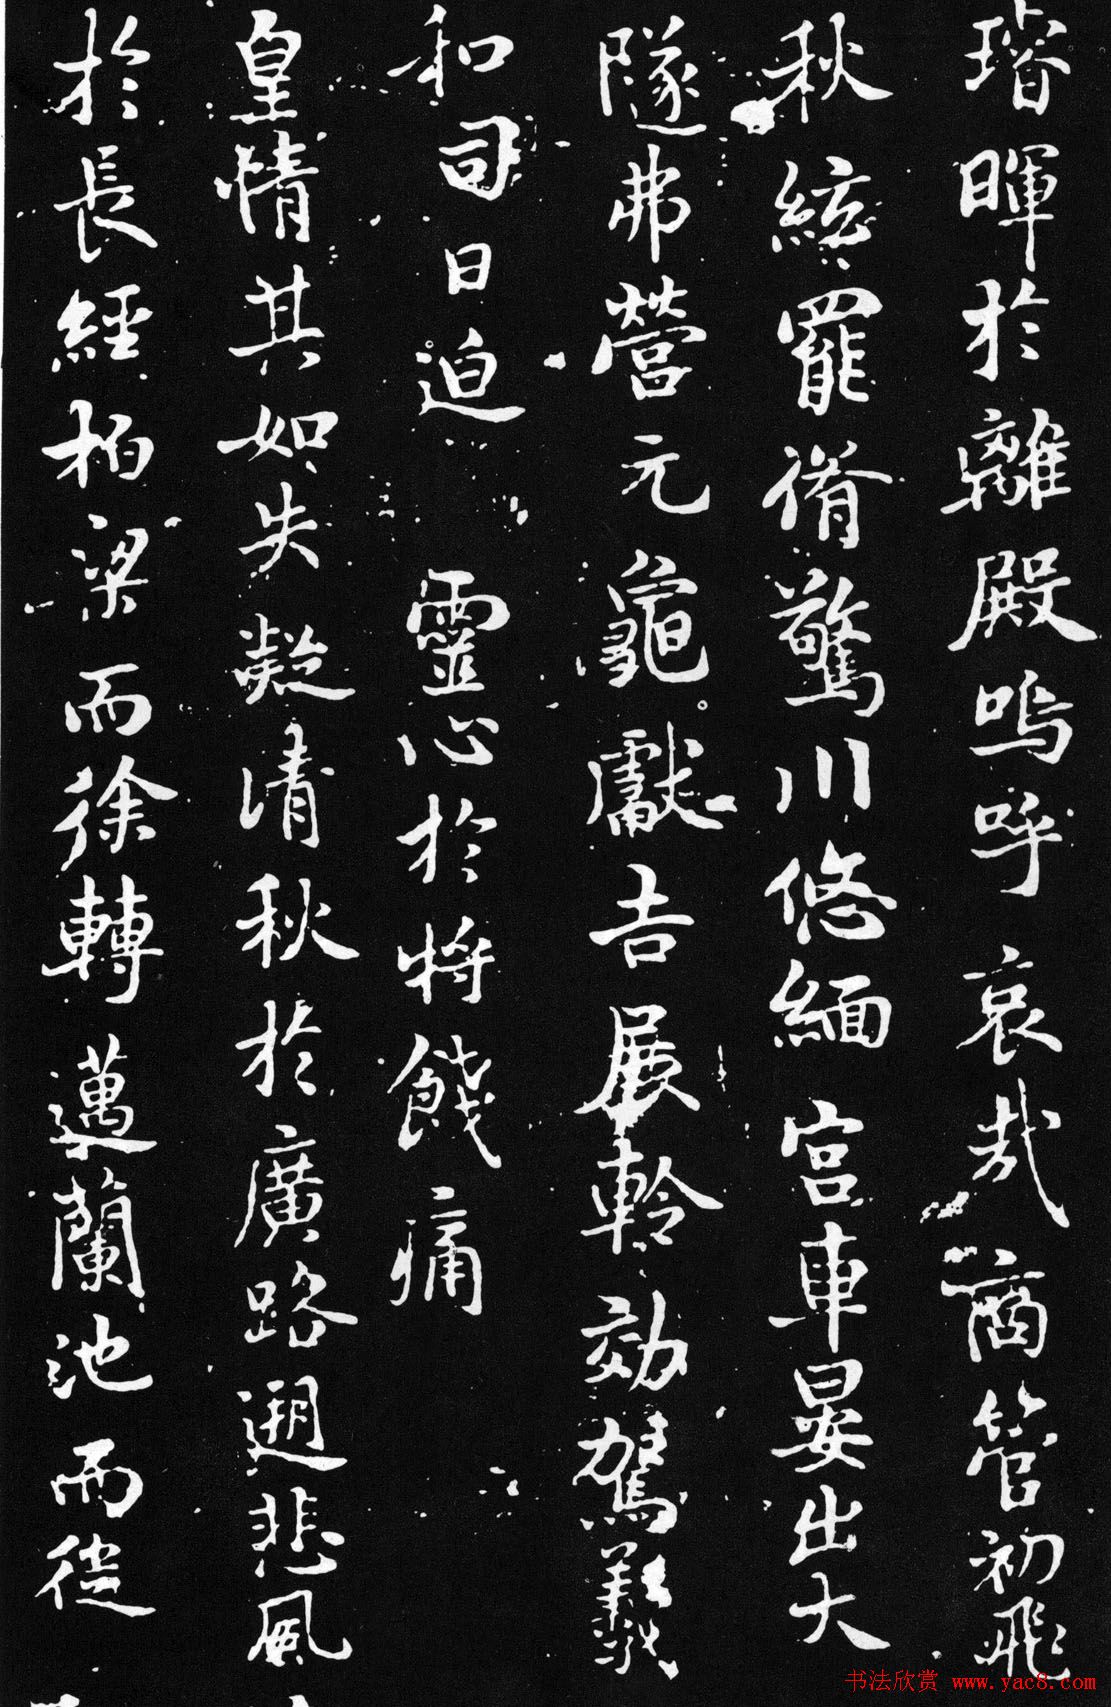 璿暉於離殿嗚呼哀哉商管初飛
秋絃罷脩驚川悠緬宮車晏出大
隧弗營元龜獻吉展軨効駕羲
和司日迫靈心於將餞痛
皇情其如失凝清秋於廣路遡悲風
於長經柏梁而徐轉邁蘭池而徙
书法欣赏 www.yac8.com